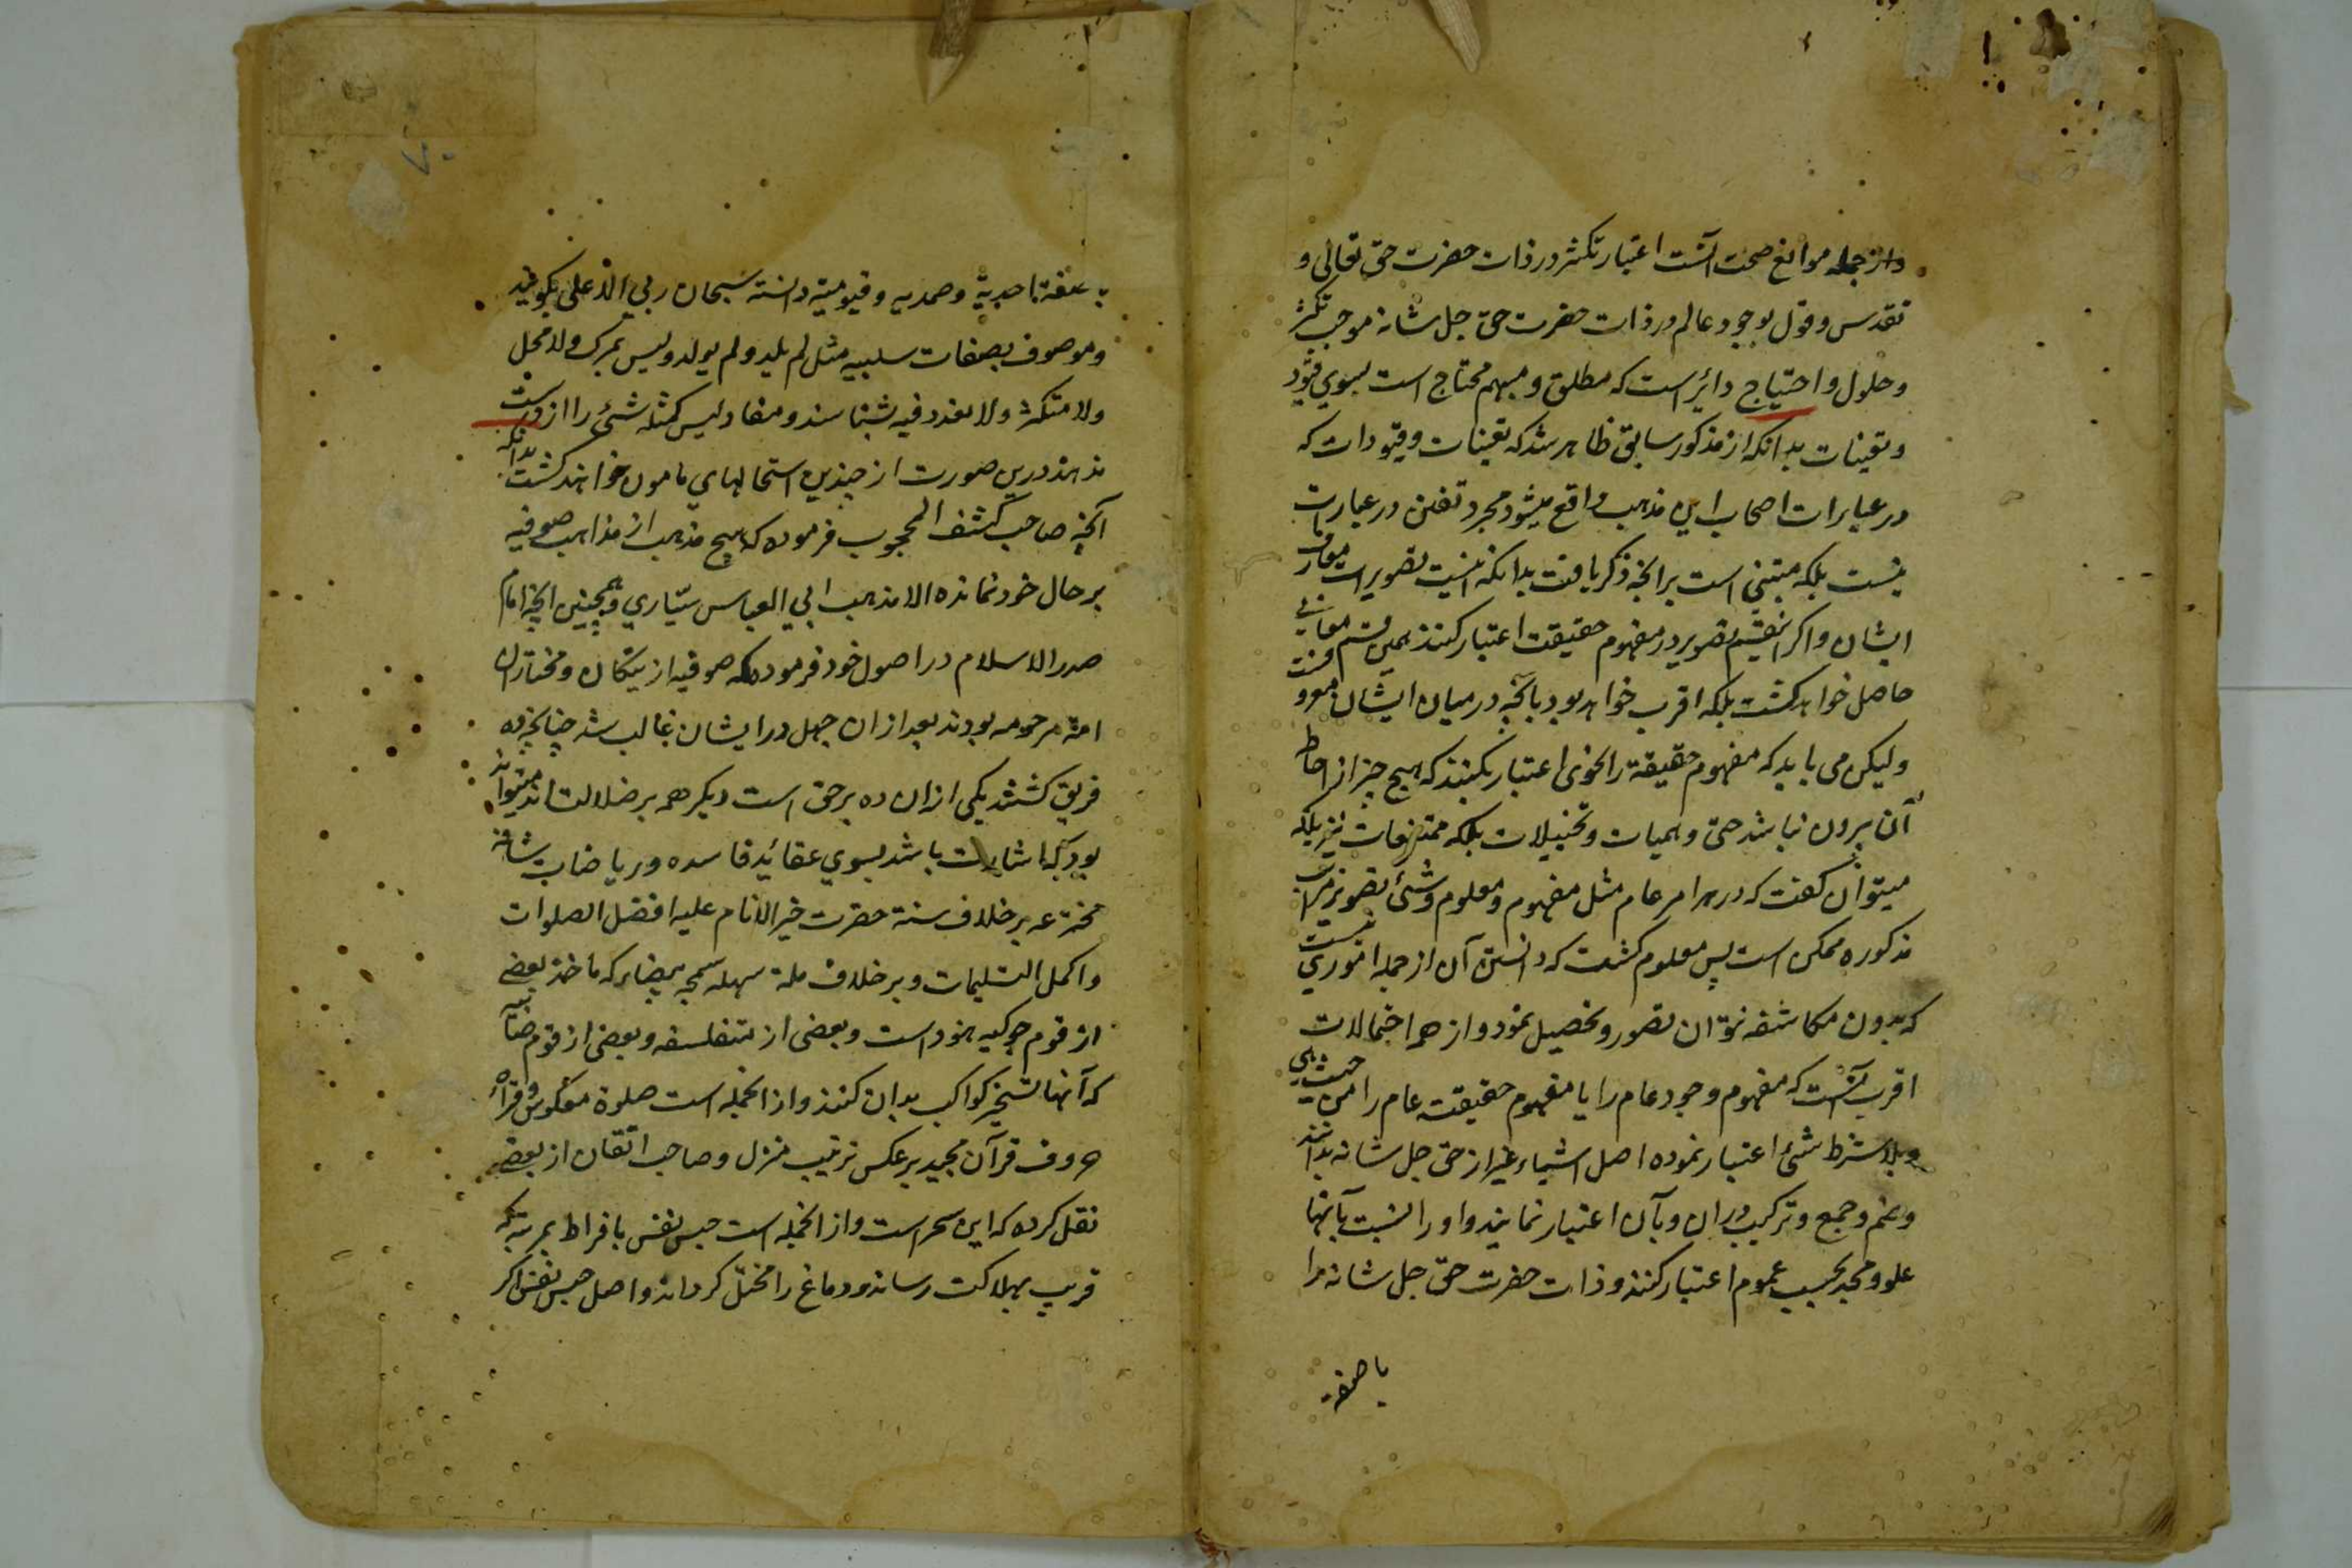 واز جمله موانع صحت آنست اعتبار تکثر در ذات حضرت حق تعالی و
تقدس و قول بوجود عالم در ذات حضرت حق جل شانه موجب تکثر
و حلول و احتیاج دائر است که مطلق و مبهم محتاج است بسوی قیود
و تعینات بدانکه از مذکور سابق ظاهر شد که تعینات و قیودات که
در عبارات اصحاب این مذهب واقع میشود مجرد تفنن در عبارت
نیست بلکه مبتنی است برانچه ذکر یافت بدانکه اینست تصویر است
ایشان و اگر تصویر در مفهوم حقیقت اعتبار کنند همین قسم
حاصل خواهد گشت بلکه اقرب خواهد بود بآنچه در میان ایشان
ولیکن می باید که مفهوم حقیقة را بنحوی اعتبار بکنند که هیچ چیز از احاطه
آن برون نباشد حتی وهمیات و تخییلات بلکه ممتنعات نیز بلکه
میتوان گفت که در هر امر عام مثل مفهوم و معلوم و شئ تصویر مراتب
مذکوره ممکن است پس معلوم گشت که دانستن آن از جمله اموری نیست
که بدون مکاشفه نتوان تصور و تحصیل نمود و از همه احتمالات
اقرب آنست که مفهوم وجود عام را یا مفهوم حقیقت عام را من حیث هی
وبلا شرط شئ اعتبار نموده اصل اشیاء غیر از حق جل شانه بدانند
و ضم و جمع و ترکیب در ان و بآن اعتبار نمایند و او را نسبت بآنها
علو و مجد بحسب عموم اعتبار کنند و ذات حضرت حق جل شانه را
با صفة
۷۰
با صفة احدیة و صمدیه و قیومیته دانسته سبحان ربی الاعلی بگویند
و موصوف بصفات سلبیه مثل لم یلد ولم یولد ولیس بمرکب ولا محل
ولا متکثر ولا تعدد فیه بشناسند و مفاد لیس کمثله شئ را از دست
ندهند درین صورت از چندین استحالهای مامون خواهند گشت بدانکه
آنچه صاحب کشف المحجوب فرموده که هیچ مذهب از مذاهب صوفیه
بر حال خود نمانده الا مذهب ابی العباس سیّاری و همچنین انچه امام
صدر الاسلام در اصول خود فرموده که صوفیه از نیکان و مختاران
امة مرحومه بودند بعد ازان جهل در ایشان غالب شد چنانچه ده
فریق گشتند یکی ازان ده بر حق است دیگر همه بر ضلالت اند میتواند
بود که اشارت باشد بسوی عقائد فاسده و ریاضات شاقه
مخترعه بر خلاف سنة حضرت خیر الانام علیه افضل الصلوات
و اکمل التسلیمات و بر خلاف ملة سهله سمحه بیضاء که ماخذ بعضی
از قوم جوکیه هنود است و بعضی از متفلسفه و بعضی از قوم صابئه
که آنها تسخیر کواکب بدان کنند و از انجمله است صلوة معکوس و قراءة
حروف قرآن مجید بر عکس ترتیب منزل و صاحب اتقان از بعضی
نقل کرده که این سحر است و از انجمله است حبس نفس بافراط بمرتبه که
قریب بهلاکت رساند و دماغ را مختل گرداند و اصل حبس نفس اگر